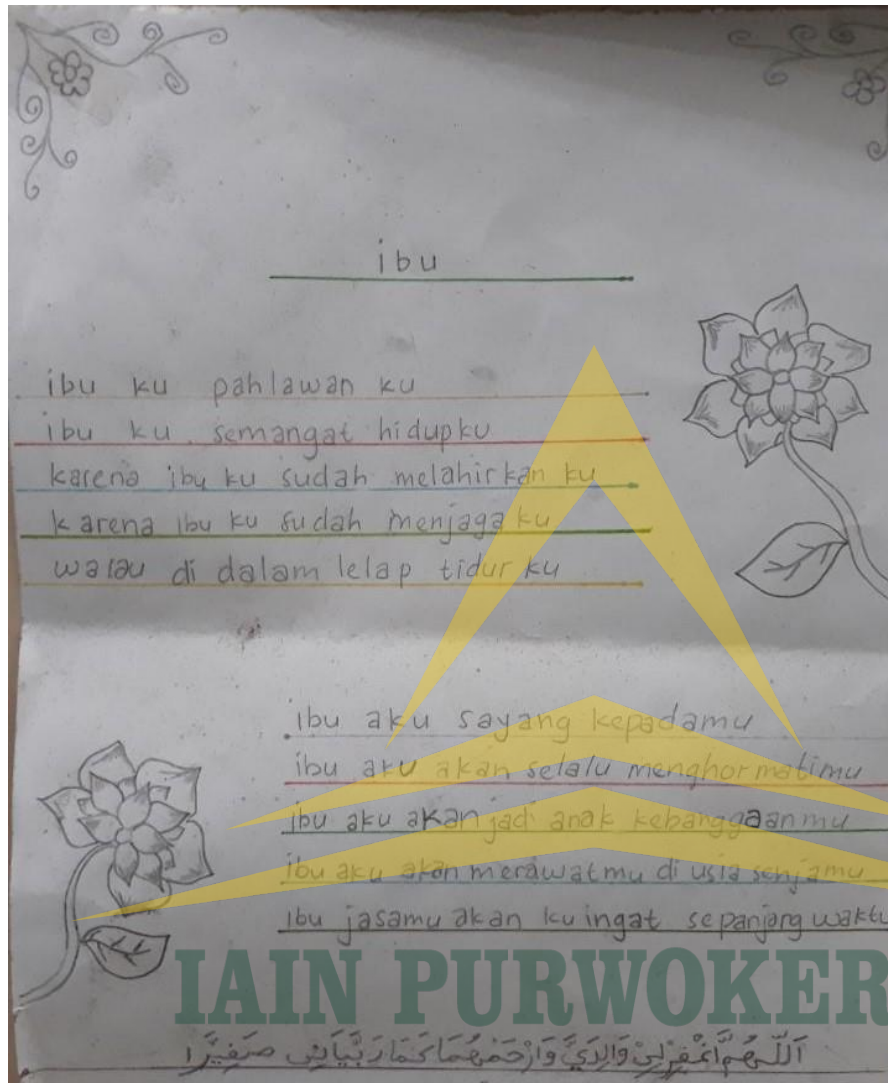 ibu
ibu ku pahlawan ku
ibu ku semangat hidupku
karena ibu ku sudah melahirkan ku
karena ibu ku sudah menjaga ku
walau di dalam lelap tidur ku
ibu aku sayang kepadamu
ibu aku akan selalu menghormatimu
ibu aku akan jadi anak kebanggaanmu
ibu aku akan merawatmu di usia senjamu
ibu jasamu akan ku ingat sepanjang waktu
IAIN PURWOKER
اَللّٰهُمَّ اغْفِرْلِيْ وَالِدَيَّ وَارْحَمْهُمَا كَمَا رَبَّيَانِى صَغِيْرًا